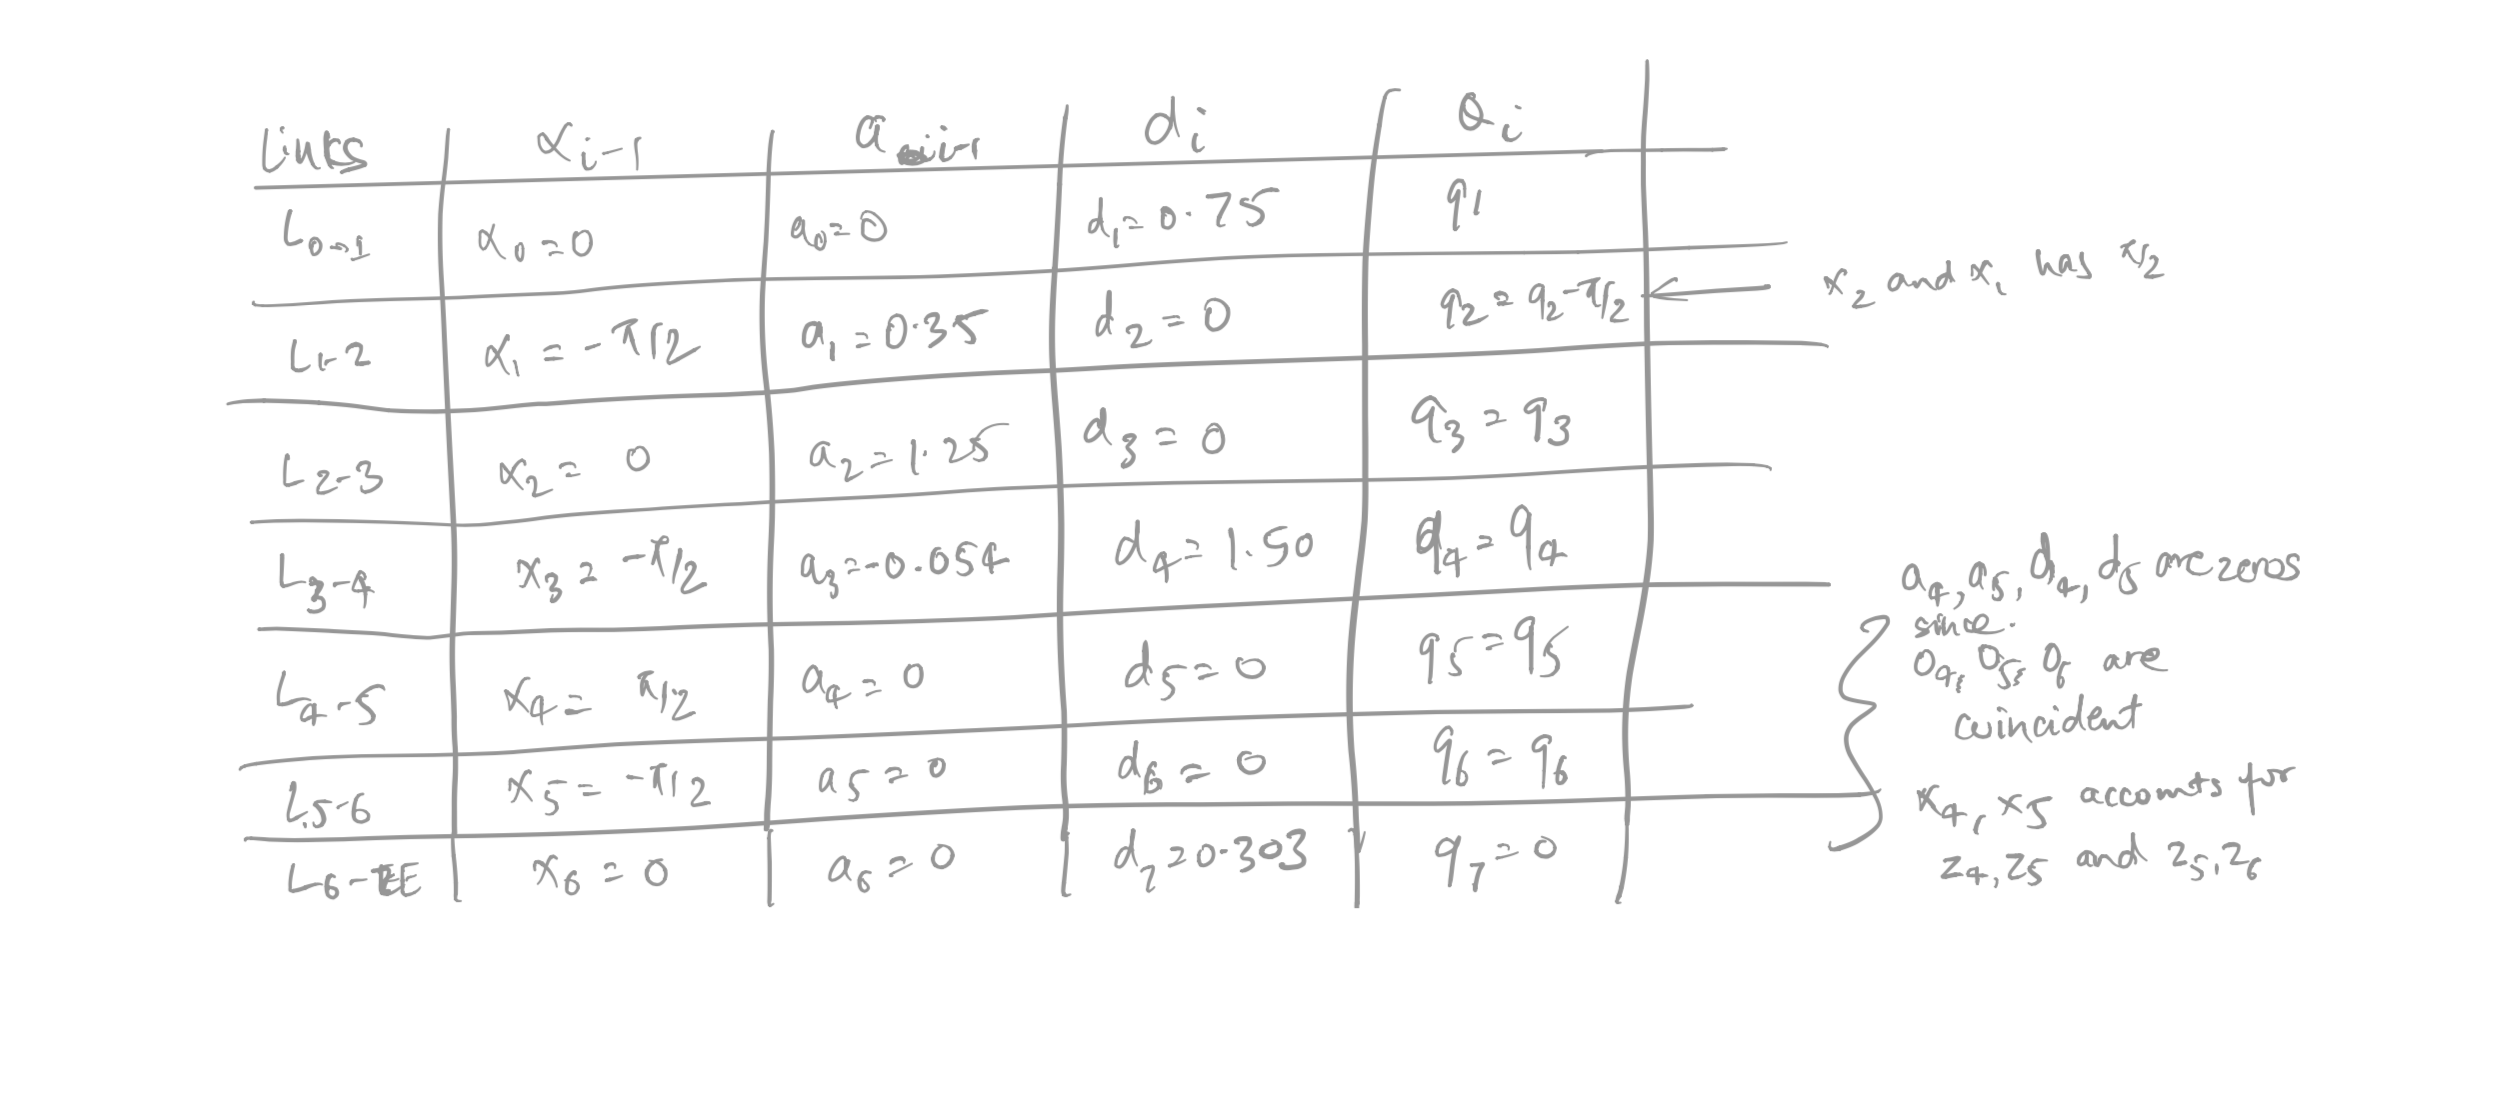 Links αi-1 ai-1 di θi
L0-1 α0=0 a0=0 d1=0.75 q1
L1-2 α1=-π/2 a1=0.35 d2=0 q2=q2-π/2 x2 and x1 has π/2
L2-3 α2=0 a2=1.25 d3=0 q3=q3
L3-4 α3=-π/2 a3=-0.054 d4=1.50 q4=q4
L4-5 α4=π/2 a4=0 d5=0 q5=q5
L5-6 α5=-π/2 a5=0 d6=0 q6=q6
L6-EE α6=0 a6=0 d7=0.303 q7=0
a4, a5, d4, d5 are zeros
sine.
O4, O5, O6 are
coincident
α4, α5 accounts for
z4, z5 and z5, z6